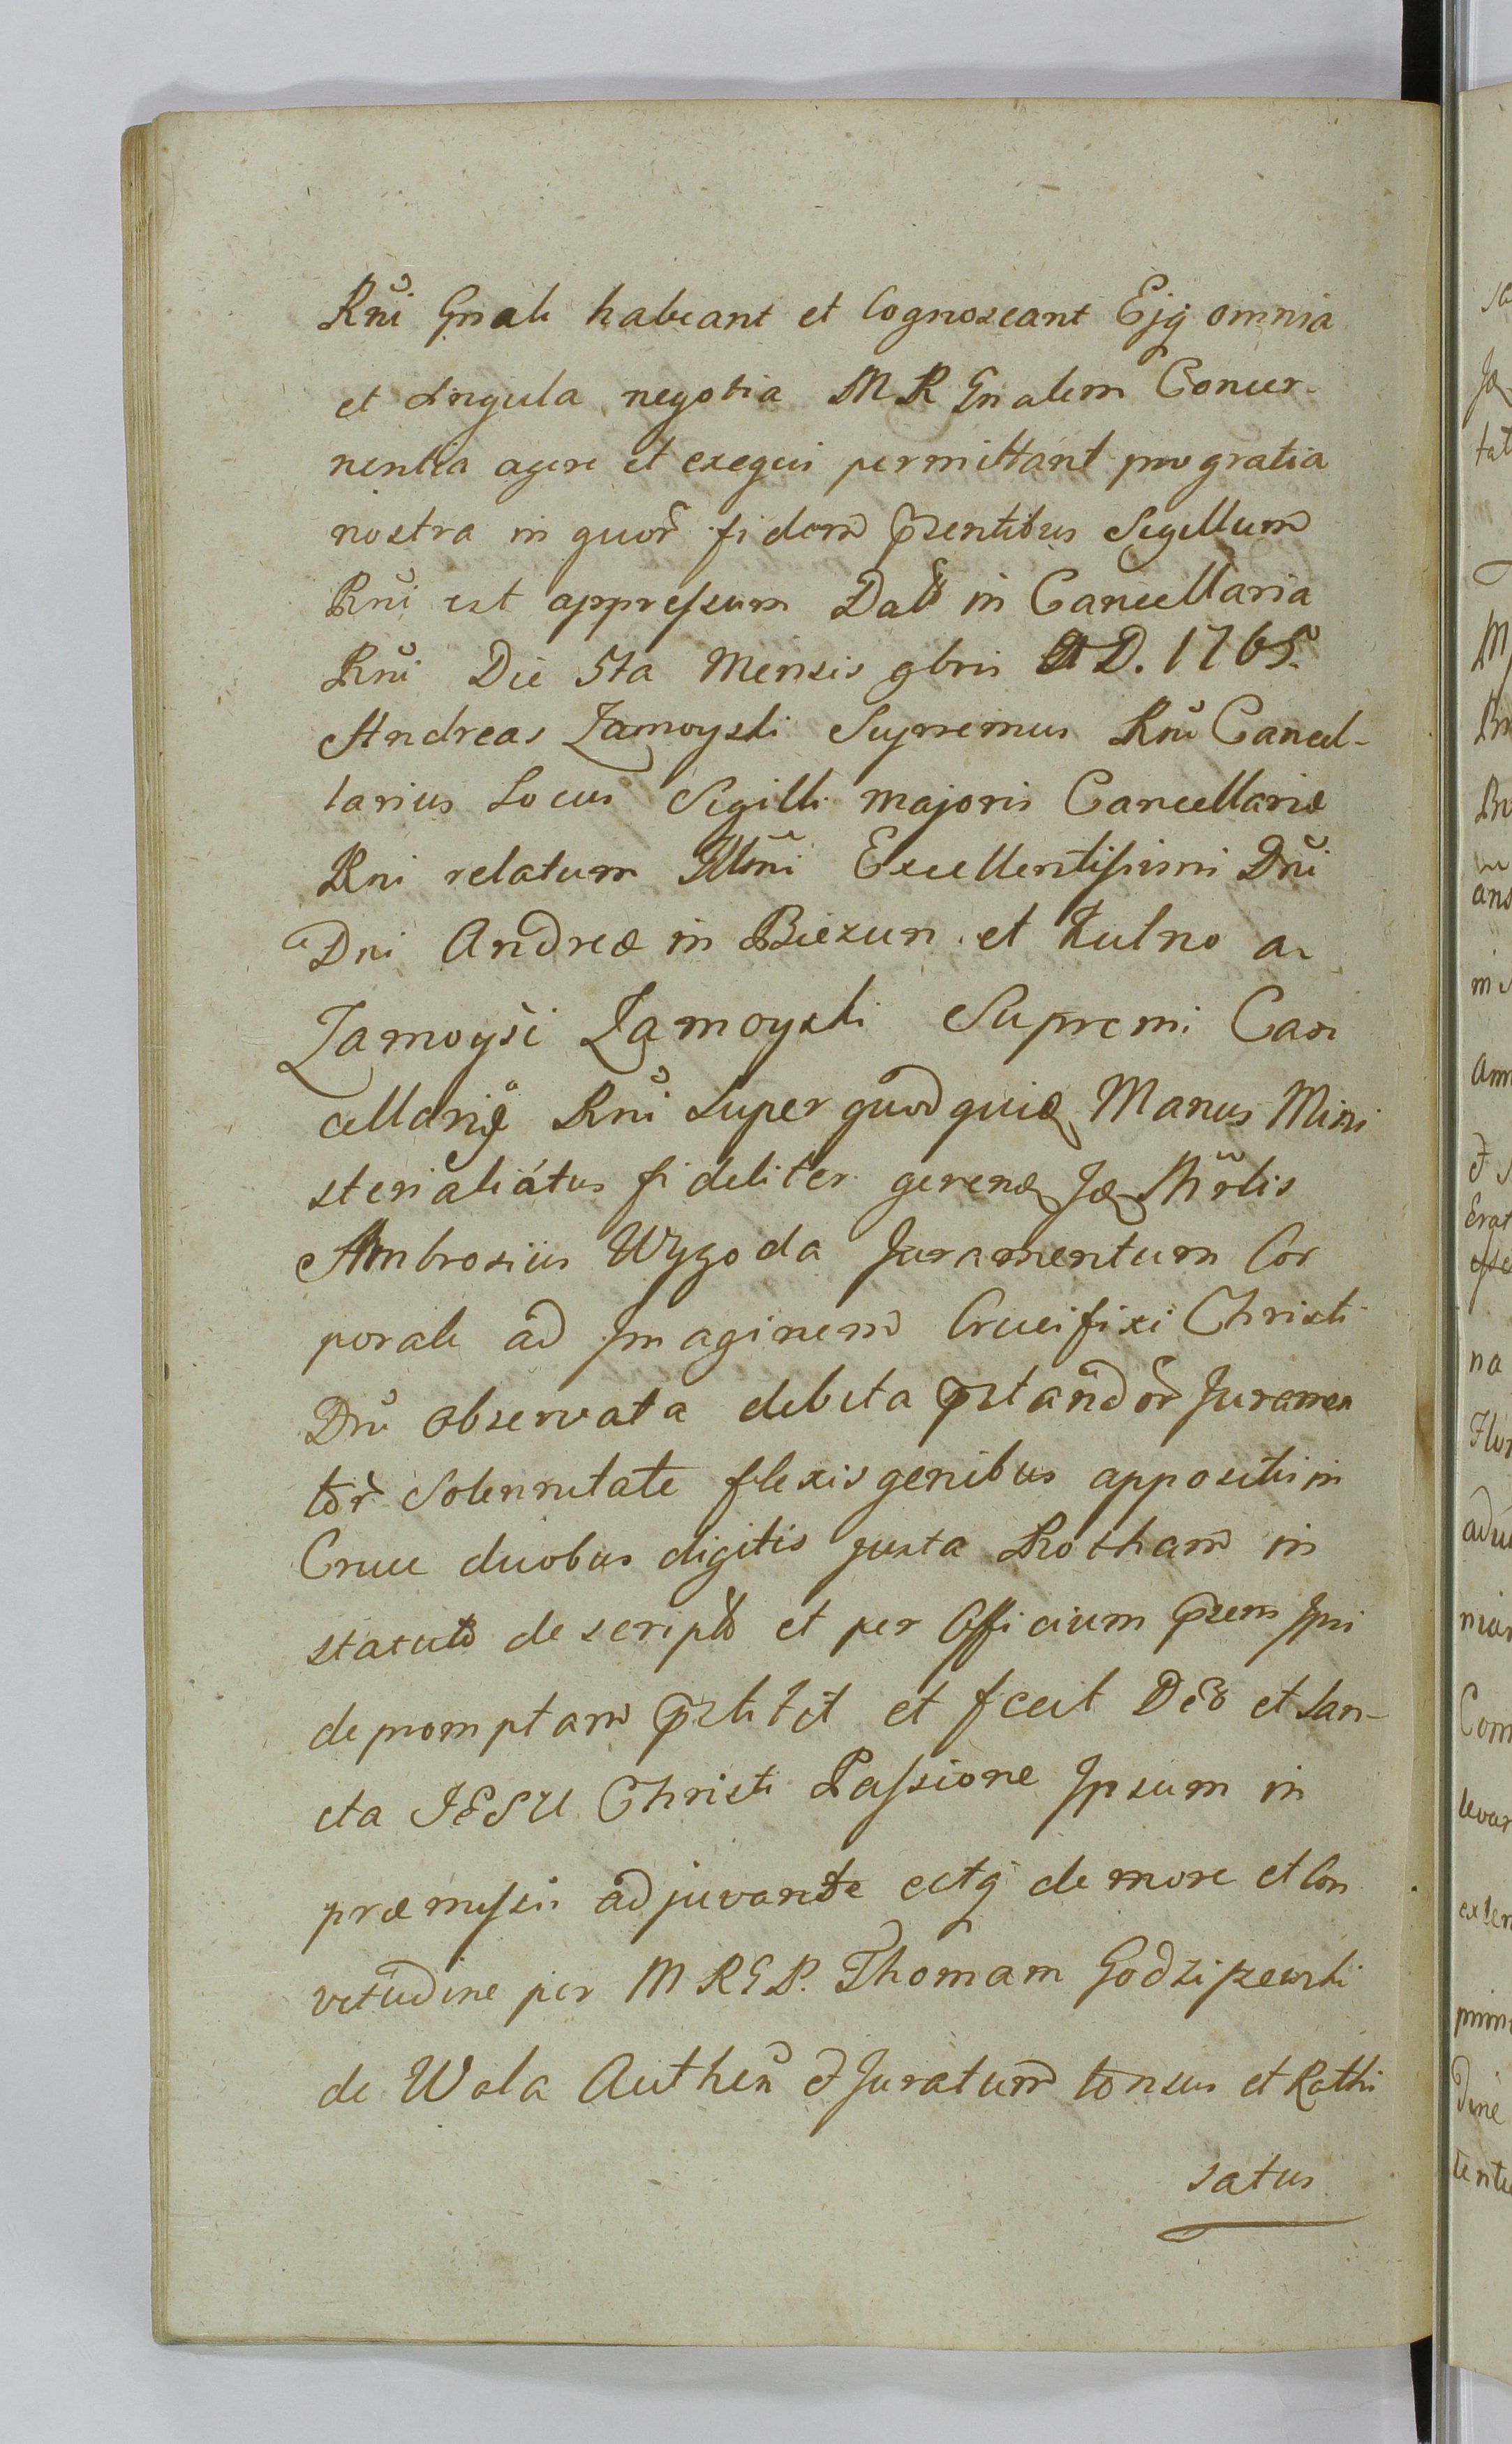 Rnĩ Gnale habeant et Cognoscant Ejq omnia
et singula negotia MR Gnalem Concer-
nentia agere et exequi permittant pro gratia
nostra in quor̃ fidem p̃sentibus Sigillum
Rnĩ est appressum Datt in Cancellaria
Rnĩ Die 5ta Mensis 9bris AD. 1765.
Andreas Zamoyski Supremus Rnĩ Cancel-
larius Locus Sigilli majoris Cancellariæ
Rni relatum Illm̃i Excellentissimi Dnĩ
Dni Andreæ in Biezun et Kulno a
Zamoysci Zamoyski Supremi Can
cellarii Rnĩ super quod quia Manus Mini
sterialiatus fideliter gerenð Jð Mr̃lis
Ambrosius Wygoda Juramentum Cor
porale ad Imaginem Crucifixi Christi
Dnĩ observata debita p̃standor̃ Juramen
tor̃ Solennitate flexis genibus appositis in
Cruce duobus digitis juxta Rotham in
statuto descript et per Officium p̃sens Ipsi
depromptam p̃stitit et fecit Deo et San-
cta JESU Christi Passione Ipsum in
præmissis adjuvante estq de more et Con
vetudine per MRGP. Thomam Godziszewski
de Wola Authen̄ & Juratum tonsus et Rothi
satus